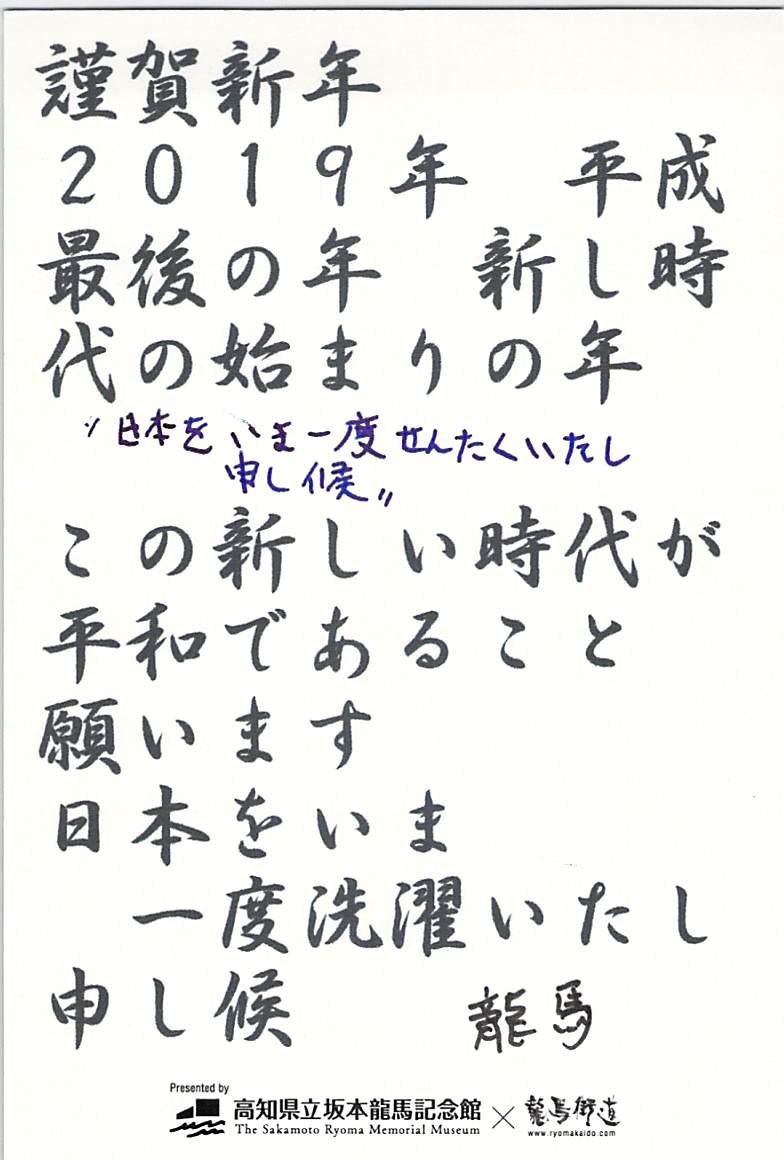 謹賀新年
2019年　平成
最後の年　新し時
代の始まりの年
"日本をいま一度せんたくいたし
申し候"
この新しい時代が
平和であること
願います
日本をいま
一度洗濯いたし
申し候　龍馬
Presented by
高知県立坂本龍馬記念館 × 龍馬街道
The Sakamoto Ryoma Memorial Museum www.ryomakaido.com